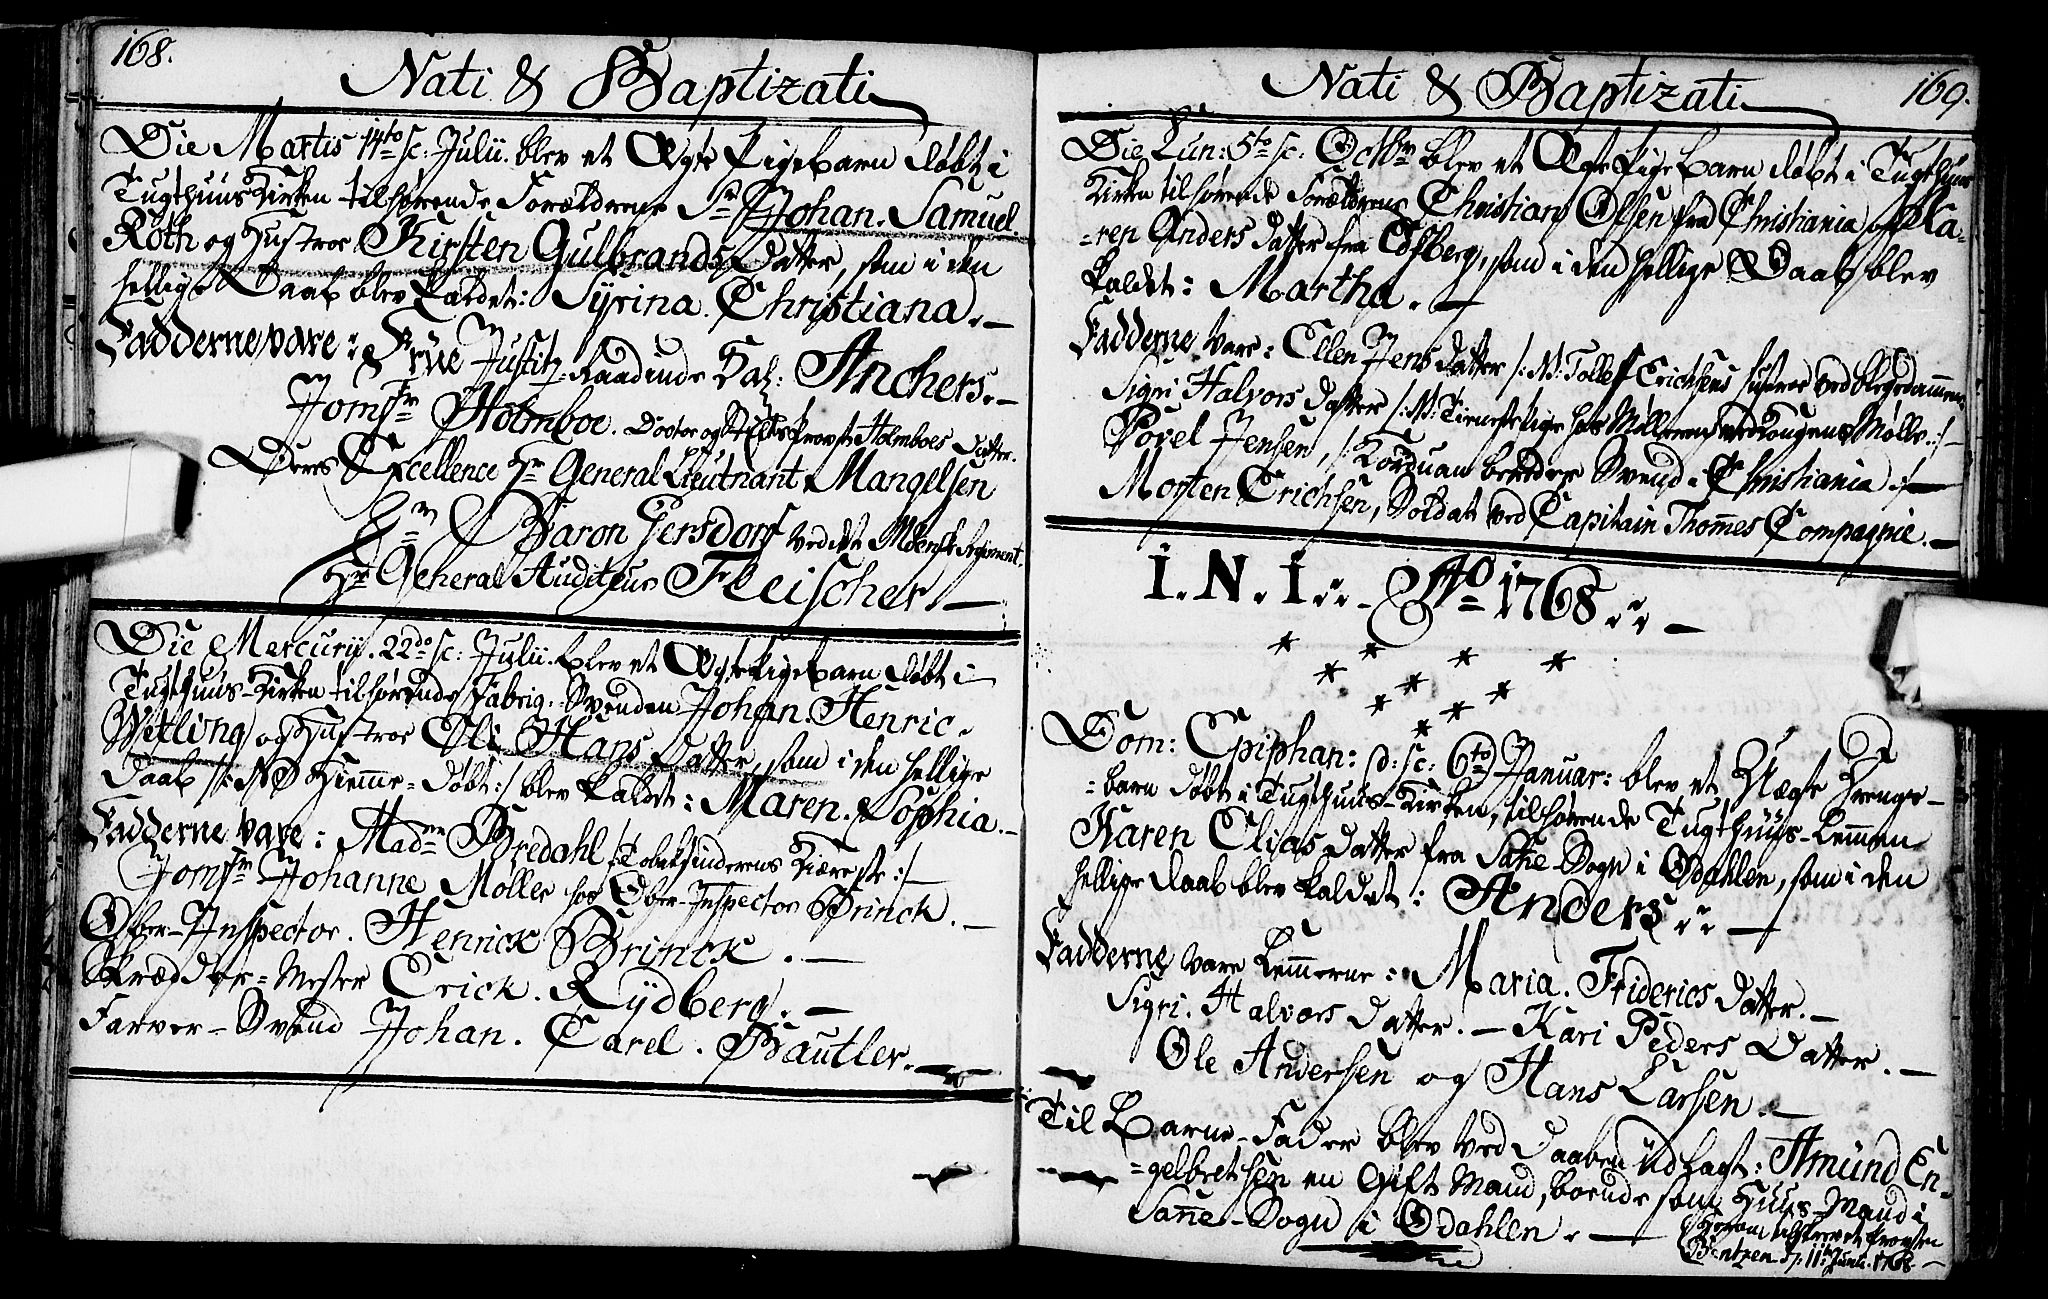 168.
Nati & Baptizati
Die Martis 14to sc: Julii. blev et Ægte Pigebarn døbt i
Tugthuus Kirken tilhørende Forældrene Sr Johan. Samuel.
Roth og Hustroe Kirsten Gulbrands Datter, som i den
hellige Daab blev kaldet: Syrina. Christiana. —
Fadderne vare: Frue Justitz-Raadinde Sal: Anchers. —
Jomfr Holmboe. Doctor og Provst Holmboes Datter.
Deres Excellence Hr General Lieutnant Mangelsen
Hr Baron Gersdorf ved det Regiment.
Hr General Auditeur Fleischer. —
Die Mercurii. 22do sc: Julii. blev et Ægte Pigebarn døbt i
Tugthuus-Kirken tilhørende Fabriq-Svenden Johan. Henric.
Witling og Hustroe Eli Hans Datter, som i den hellige
Daab /: NB Hiemme-døbt :/ blev kaldet: Maren. Sophia. —
Fadderne vare: Madme Bredahl /: Tobakspinderens Kiæreste :/ —
Jomfr Johanne Møller hos Ober-Inspector Brinck. —
Ober-Inspector. Henrick Brinck. —
Skrædder-Mester Erick. Rydberg. —
Farver-Svend Johan. Carel. Bautler. —
169.
Nati & Baptizati
Die Lun: 5to sc: Octbr blev et Ægte Pige Barn døbt i Tugthuus
Kirken tilhørende Forældrene Christian Olsen fra Christiania og Ka-
-ren Anders Datter fra Edsberg, som i den hellige Daab blev
kaldet: Martha. —
Fadderne vare: Ellen Jens Datter /: M: Tollef Erichsens Hustroe ved Blegedammen
Sigri Halvors Datter /: M: Tieneste Pige hos Mølleren ved Kongens Mølle :/ —
Povel Jensen, /: Korduan bereder Svend i Christiania :/ —
Morten Erichsen, Soldat ved Capitain Thomes Compagnie. —
I. N. I. Ao 1768. —
Dom: Epiphan: d: sc: 6to Januar: blev et Uægte Drenge-
-barn døbt i Tugthuus-Kirken, tilhørende Tugthuus-Lemmen
Karen Elias Datter fra Sogn i Odahlen, som i den
hellige Daab blev kaldet: Anders —
Fadderne vare Lemmerne: Maria. Friderics Datter. —
Sigri. Halvors Datter. — Kari Peders Datter. —
Ole Andersen og Hans Larsen. —
Til Barne-Fader blev ved Daaben udsagt: Amund En-
-gelbretsen en Gift Mand, boende som Huus-Mand i
Sogn i Odahlen. —
Herom tilskrevet Provsten
Bentzen d: 11te Junii. 1768. —